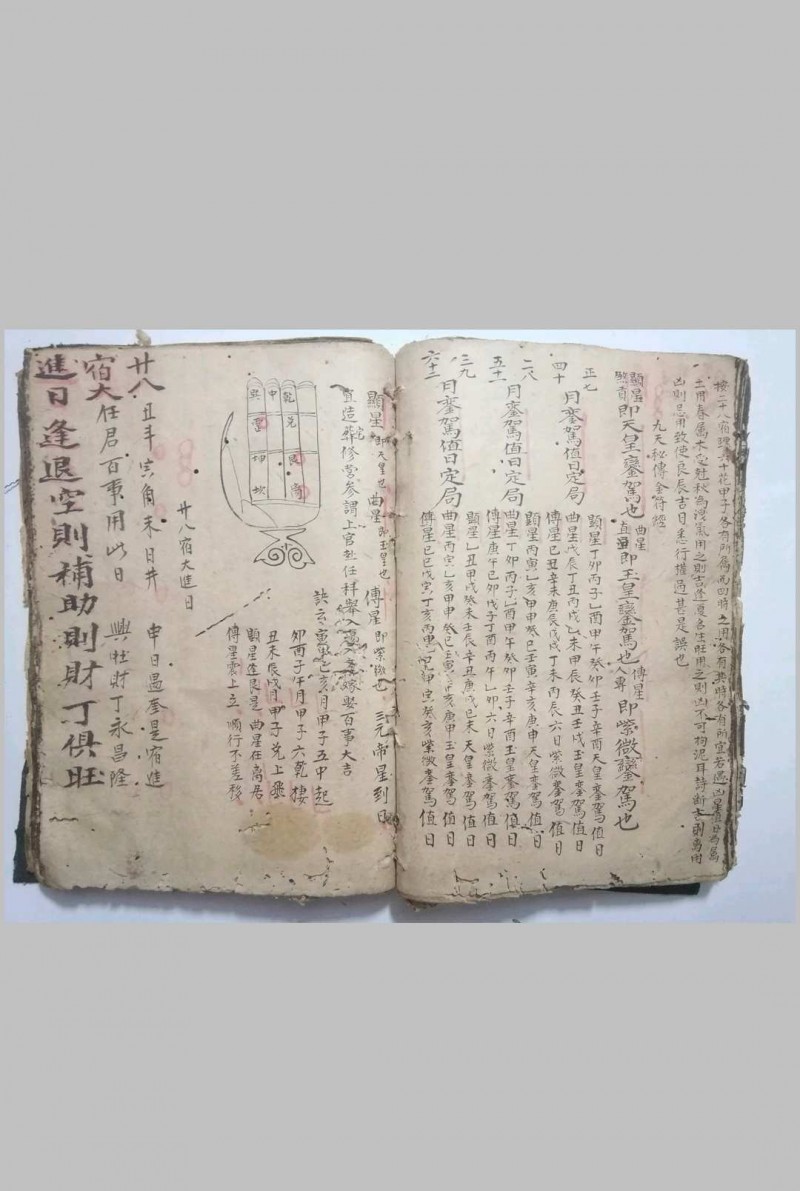 按二十八宿理與十花甲子各有所屬而四時之用各有其時各有所宜若遇凶星值日為屬
土用春屬木
凶則忌用致使良辰吉日悉行權過甚是誤也
九天秘傳金符經
顯星
即天皇鑾駕也
曲星
即玉皇鑾駕也
傅星
即紫微鑾駕也
正七
四十
月鑾駕值日定局
顯星丁卯丙子乙酉甲午癸卯壬子辛酉天皇鑾駕值日
曲星戊辰丁丑丙戌乙未甲辰癸丑壬戌玉皇鑾駕值日
傅星己丑辛未庚辰戊戌丁未丙辰六日紫微鑾駕值日
二八
五十一
月鑾駕值日定局
顯星丙寅乙亥甲申癸巳壬寅辛亥庚申天皇鑾駕值日
曲星丁卯丙子乙酉甲午癸卯壬子辛酉玉皇鑾駕值日
傅星庚午己卯戊子丁酉丙午乙卯六日紫微鑾駕值日
三九
六十二
月鑾駕值日定局
顯星乙丑甲戌癸未壬辰辛丑庚戌己未天皇鑾駕值日
曲星丙寅乙亥甲申癸巳壬寅辛亥庚申玉皇鑾駕值日
傅星己巳戊寅丁亥丙申乙巳甲寅癸亥紫微鑾駕值日
顯星
即天皇也
曲星
即玉皇也
傅星
即紫微也
三元帝星到日
宜造葬修營參謁上官赴任拜舉入宅嫁娶百事大吉
訣云寅申巳亥月甲子五中起
卯酉子午月甲子六乾棲
丑未辰戌月甲子兌上飛
顯星逢艮是曲星在离居
傅星震上立順行不差移
巽
中
乾
震
兌
坤
艮
坎
离
廿八宿大進日
申日逢奎是宿進
丑斗寅角未日井
興旺財丁永昌隆
任君百事用此日
廿八宿大
進日逢退空則補助則財丁俱旺